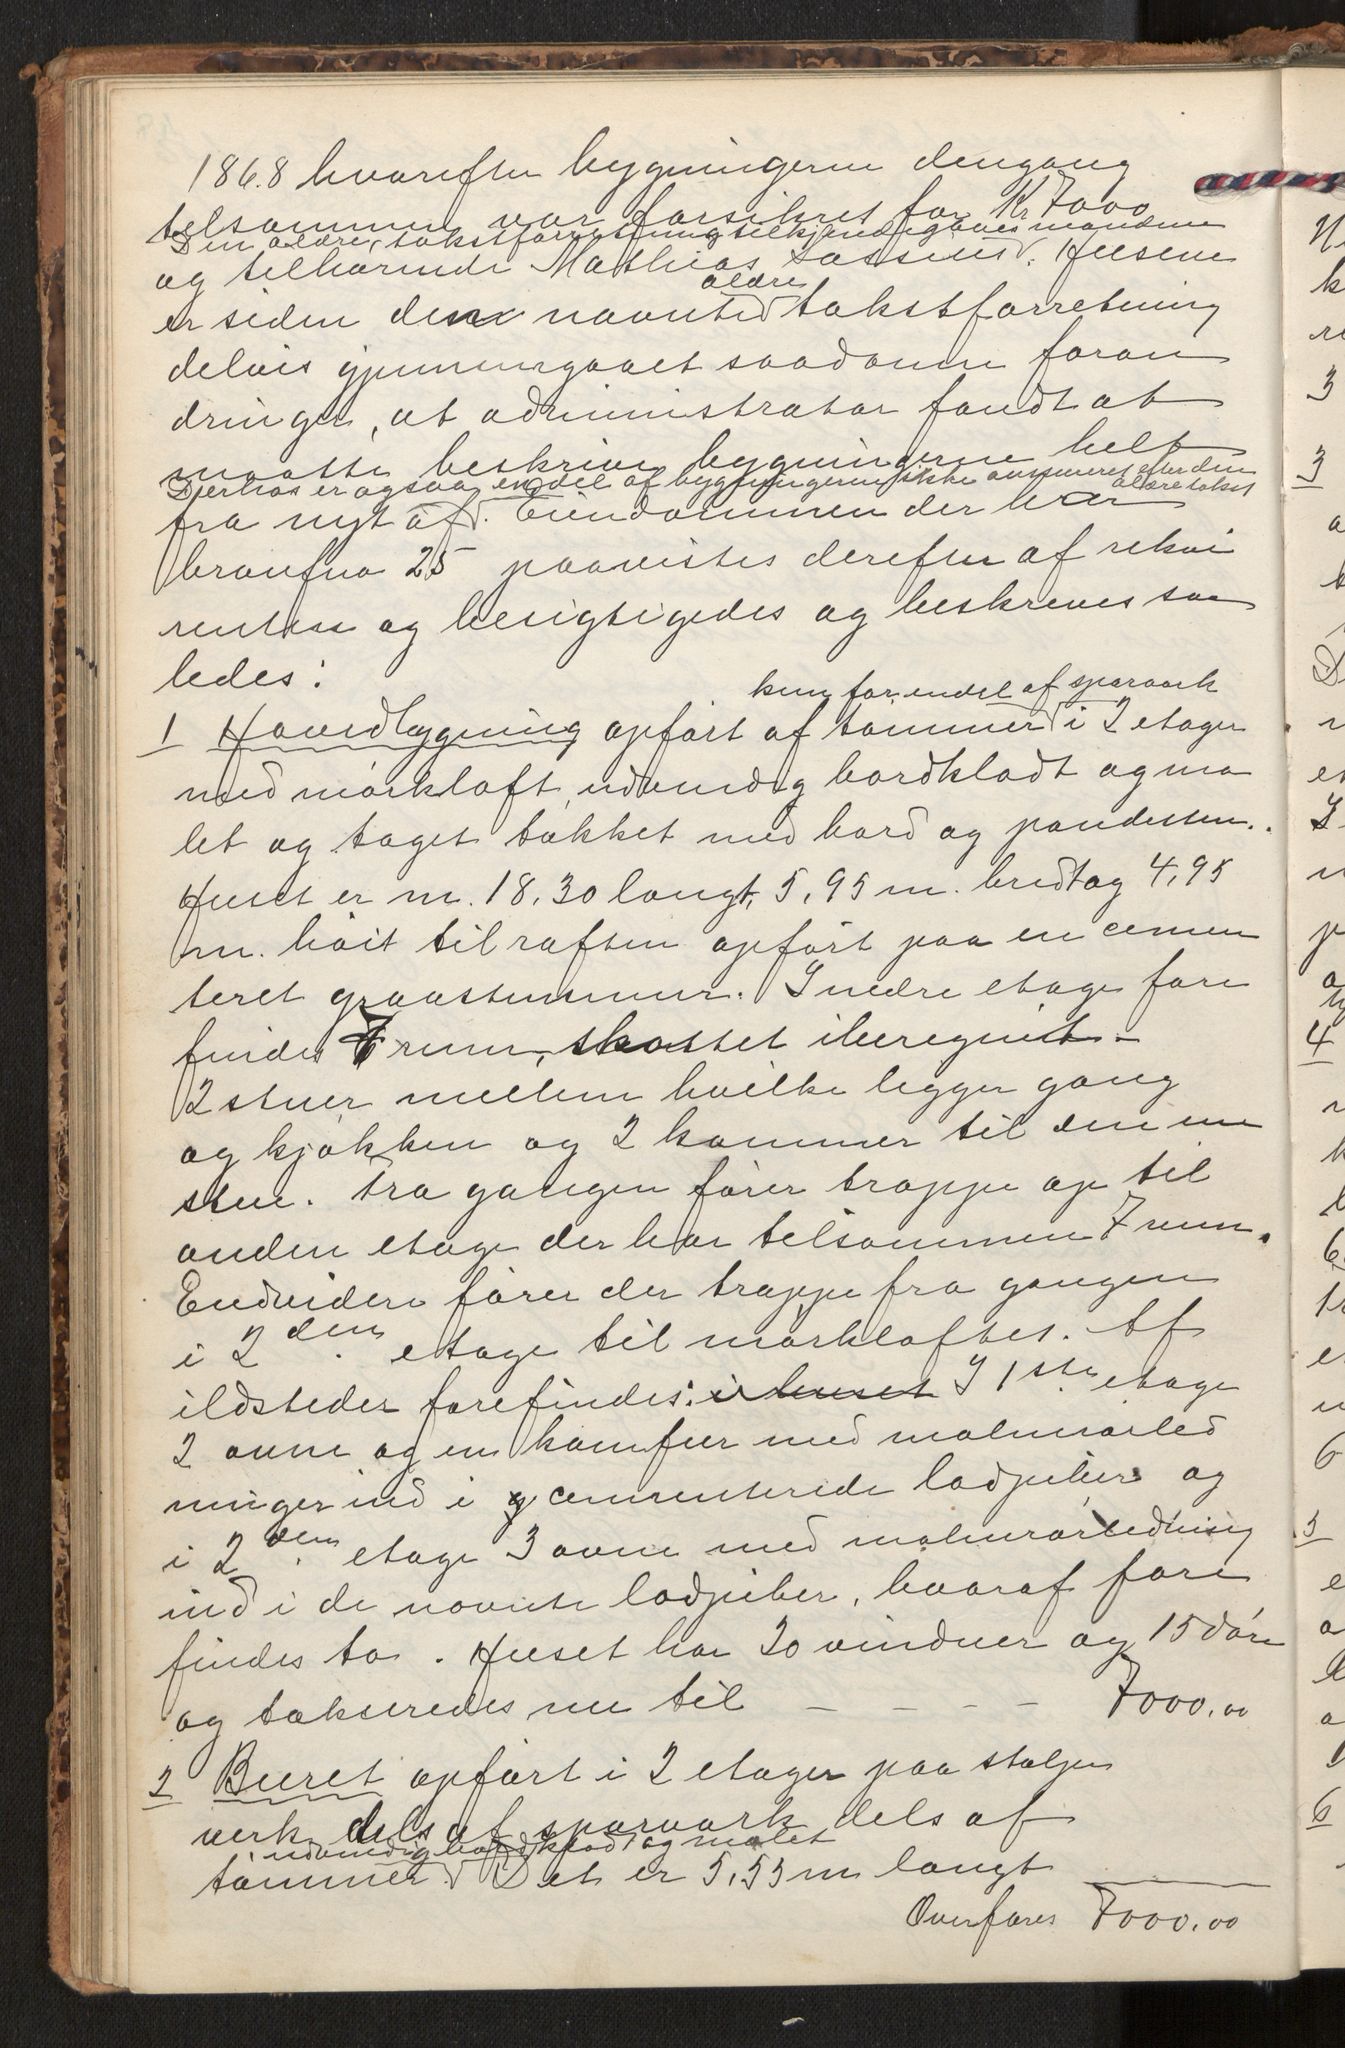 1868 hvorefter bygningerne dengang
tilsammen var forsikret for Kr 7000
Den ældre takstforretning tilkjendegaves mændene
og tilhørende Mathias Lassen. Husene
ældre
er siden den nævnte takstforretning
delvis gjennemgaaet saadanne foran
dringer, at administrator fandt at
maatte beskrive bygningerne helt
Derhos er ogsaa endel af bygningerne ikke assureret efter den
ældre takst
fra nyt af. Eiendommen der har
branfno 25 paavistes derefter af rekvi
renten og besigtigedes og beskreves saa
ledes:
kun for endel af sperværk
1 Hovedbygning opført af tømmer i 2 etager
med mørkloft, udvendig bordklædt og ma
let og taget tækket med bord og pandesten.
Huset er m. 18,30 langt, 5,95 m. bredt og 4,95
m. høit til raften opført paa en cemen
teret graastensmur. I nedre etage fore
findes 7 rum, skottet iberegnet -
2 stuer mellem hvilke ligger gang
og kjøkken og 2 kammer til den ene
stue. Fra gangen fører trappe op til
anden etage der har tilsammen 7 rum.
Endvidere fører der trappe fra gangen
i 2den etage til mørkloftet. Af
ildsteder forefindes: i huset I 1ste etage
2 ovne og en komfur med malmrørled
ninger ind i cementerede ladpiber og
i 2den etage 3 ovne med malmrørledning
ind i de nævnte ladpiber, hvoraf fore
findes to. Huset har 20 vinduer og 15 døre
og takseredes nu til - - - - 7000.00
2 Buret opført i 2 etager paa stolper
verk dels af sperværk dels af
udvendig bordklædt og malet
tømmer. Det er 5,55 m langt
Overføres 7000.00